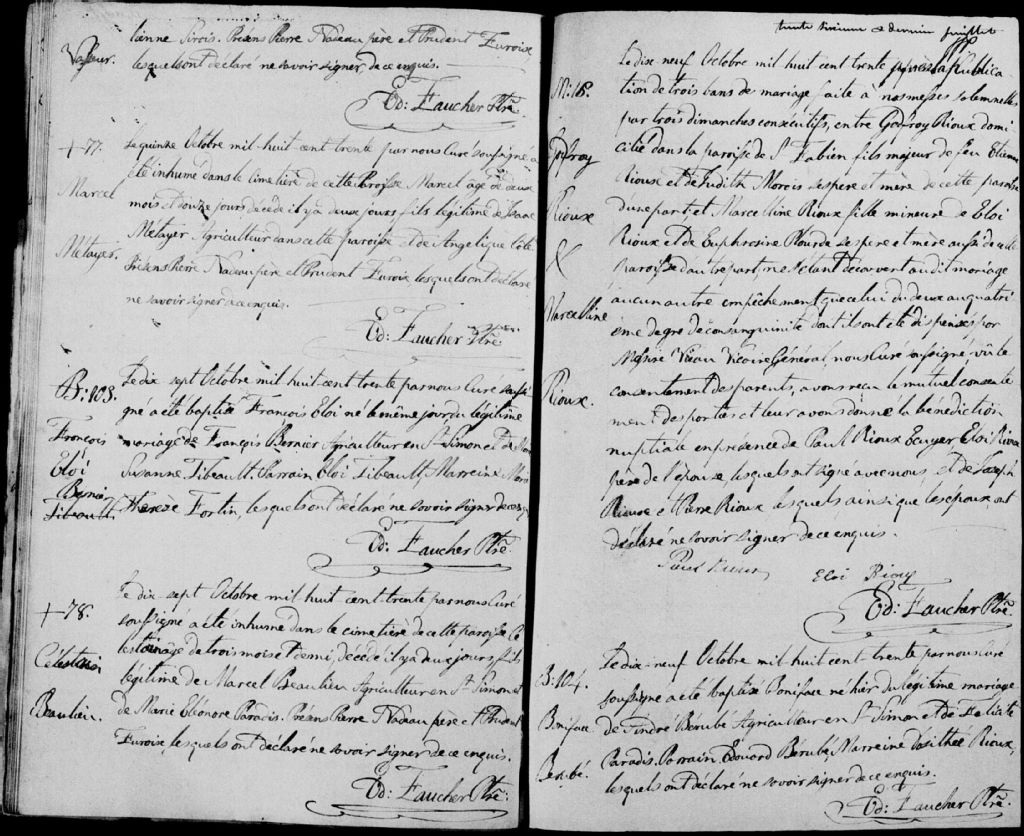 tienne Sirois. Présens Pierre Nadeau père et Prudent Furois
Vasseur.
lesquels ont déclaré ne savoir signer de ce enquis.
Ed: Faucher Ptre.
+ 77.
Marcel
Métayer.
Le quinze Octobre mil-huit-cent-trente par nous Curé soussigné a
été inhumé dans le Cimetière de cette Paroisse Marcel agé de deux
mois et douze jours décédé il y a deux jours fils légitime de Isaac
Métayer Agriculteur dans cette paroisse et de Angelique Côté
Présens Pierre Nadeau père et Prudent Furois lesquels ont déclaré
ne savoir signer de ce enquis.
Ed: Faucher Ptre.
B: 103.
François
Eloi
Bernier
Tibeault.
Le dix sept Octobre mil huit cent trente par nous Curé soussi-
gné a été baptisé François Eloi né le même jour du légitime
mariage de François Bernier Agriculteur en St Simon et de
Susanne Tibeault. Parrain Eloi Tibeault Marreine Marie
Therèse Fortin, lesquels ont déclaré ne savoir signer de ce enquis
Ed: Faucher Ptre.
+ 78.
Célestin
Beaulieu.
Le dix-sept Octobre mil huit cent-trente par nous Curé
soussigné a été inhumé dans le cimetière de cette paroisse Cé-
lestin agé de trois mois et demi, décédé il y a deux jours, fils
légitime de Marcel Beaulieu Agriculteur en St Simon et
de Marie Elénore Paradis. Présens Pierre Nadeau père et Prudent
Furois lesquels ont déclaré ne savoir signer de ce enquis.
Ed: Faucher Ptre.
M: 18.
Godfroy
Rioux
&
Marcelline
Rioux.
Le dix neuf Octobre mil huit cent trente après la publica-
tion de trois bans de mariage faite à nos messes solemnelles
par trois dimanches consécutifs, entre Godfroy Rioux domi-
cilié dans la paroisse de St Fabien fils majeur de feu Etienne
Rioux et de Judith Morois ses père et mère de cette paroisse
d'une part, et Marcelline Rioux fille mineure de Eloi
Rioux et de Euphrosine Plourde ses père et mère aussi de cette
paroisse d'autre part, ne s'étant découvert au dit mariage
aucun autre empêchement que celui du deux au quatri-
ème degré de consanguinité dont ils ont été dispensés par
Messire Viau Vicaire Général, nous Curé soussigné vû le
consentement des parents, avons reçu le mutuel consente
ment des parties et leur avons donné la bénédiction
nuptiale en présence de Paul Rioux Ecuyer Eloi Rioux
père de l'épouse lesquels ont signé avec nous, et de Joseph
Rioux et Pierre Rioux lesquels ainsi que les époux, ont
déclaré ne savoir signer de ce enquis.
Paul Rioux Eloi Rioux
Ed: Faucher Ptre.
B: 104.
Boniface
Berubé.
Le dix-neuf Octobre mil huit cent-trente par nous Curé
soussigné a été baptisé Boniface né hier du légitime mariage
de André Bérubé Agriculteur en St Simon et de Felicité
Paradis. Parrain Edouard Bérubé, Marreine Dosithée Rioux,
lesquels ont déclaré ne savoir signer de ce enquis.
Ed: Faucher Ptre.